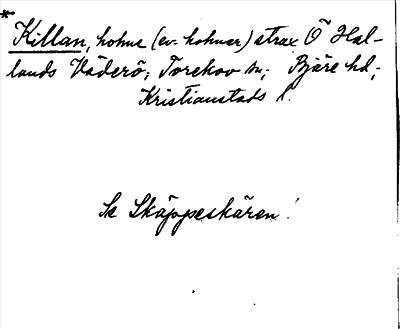 *
Killan, holme (ev. holmar) strax Ö Hal-
lands Väderö; Torekov sn; Bjäre hd;
Kristianstads l.
Se Skäppeskären!